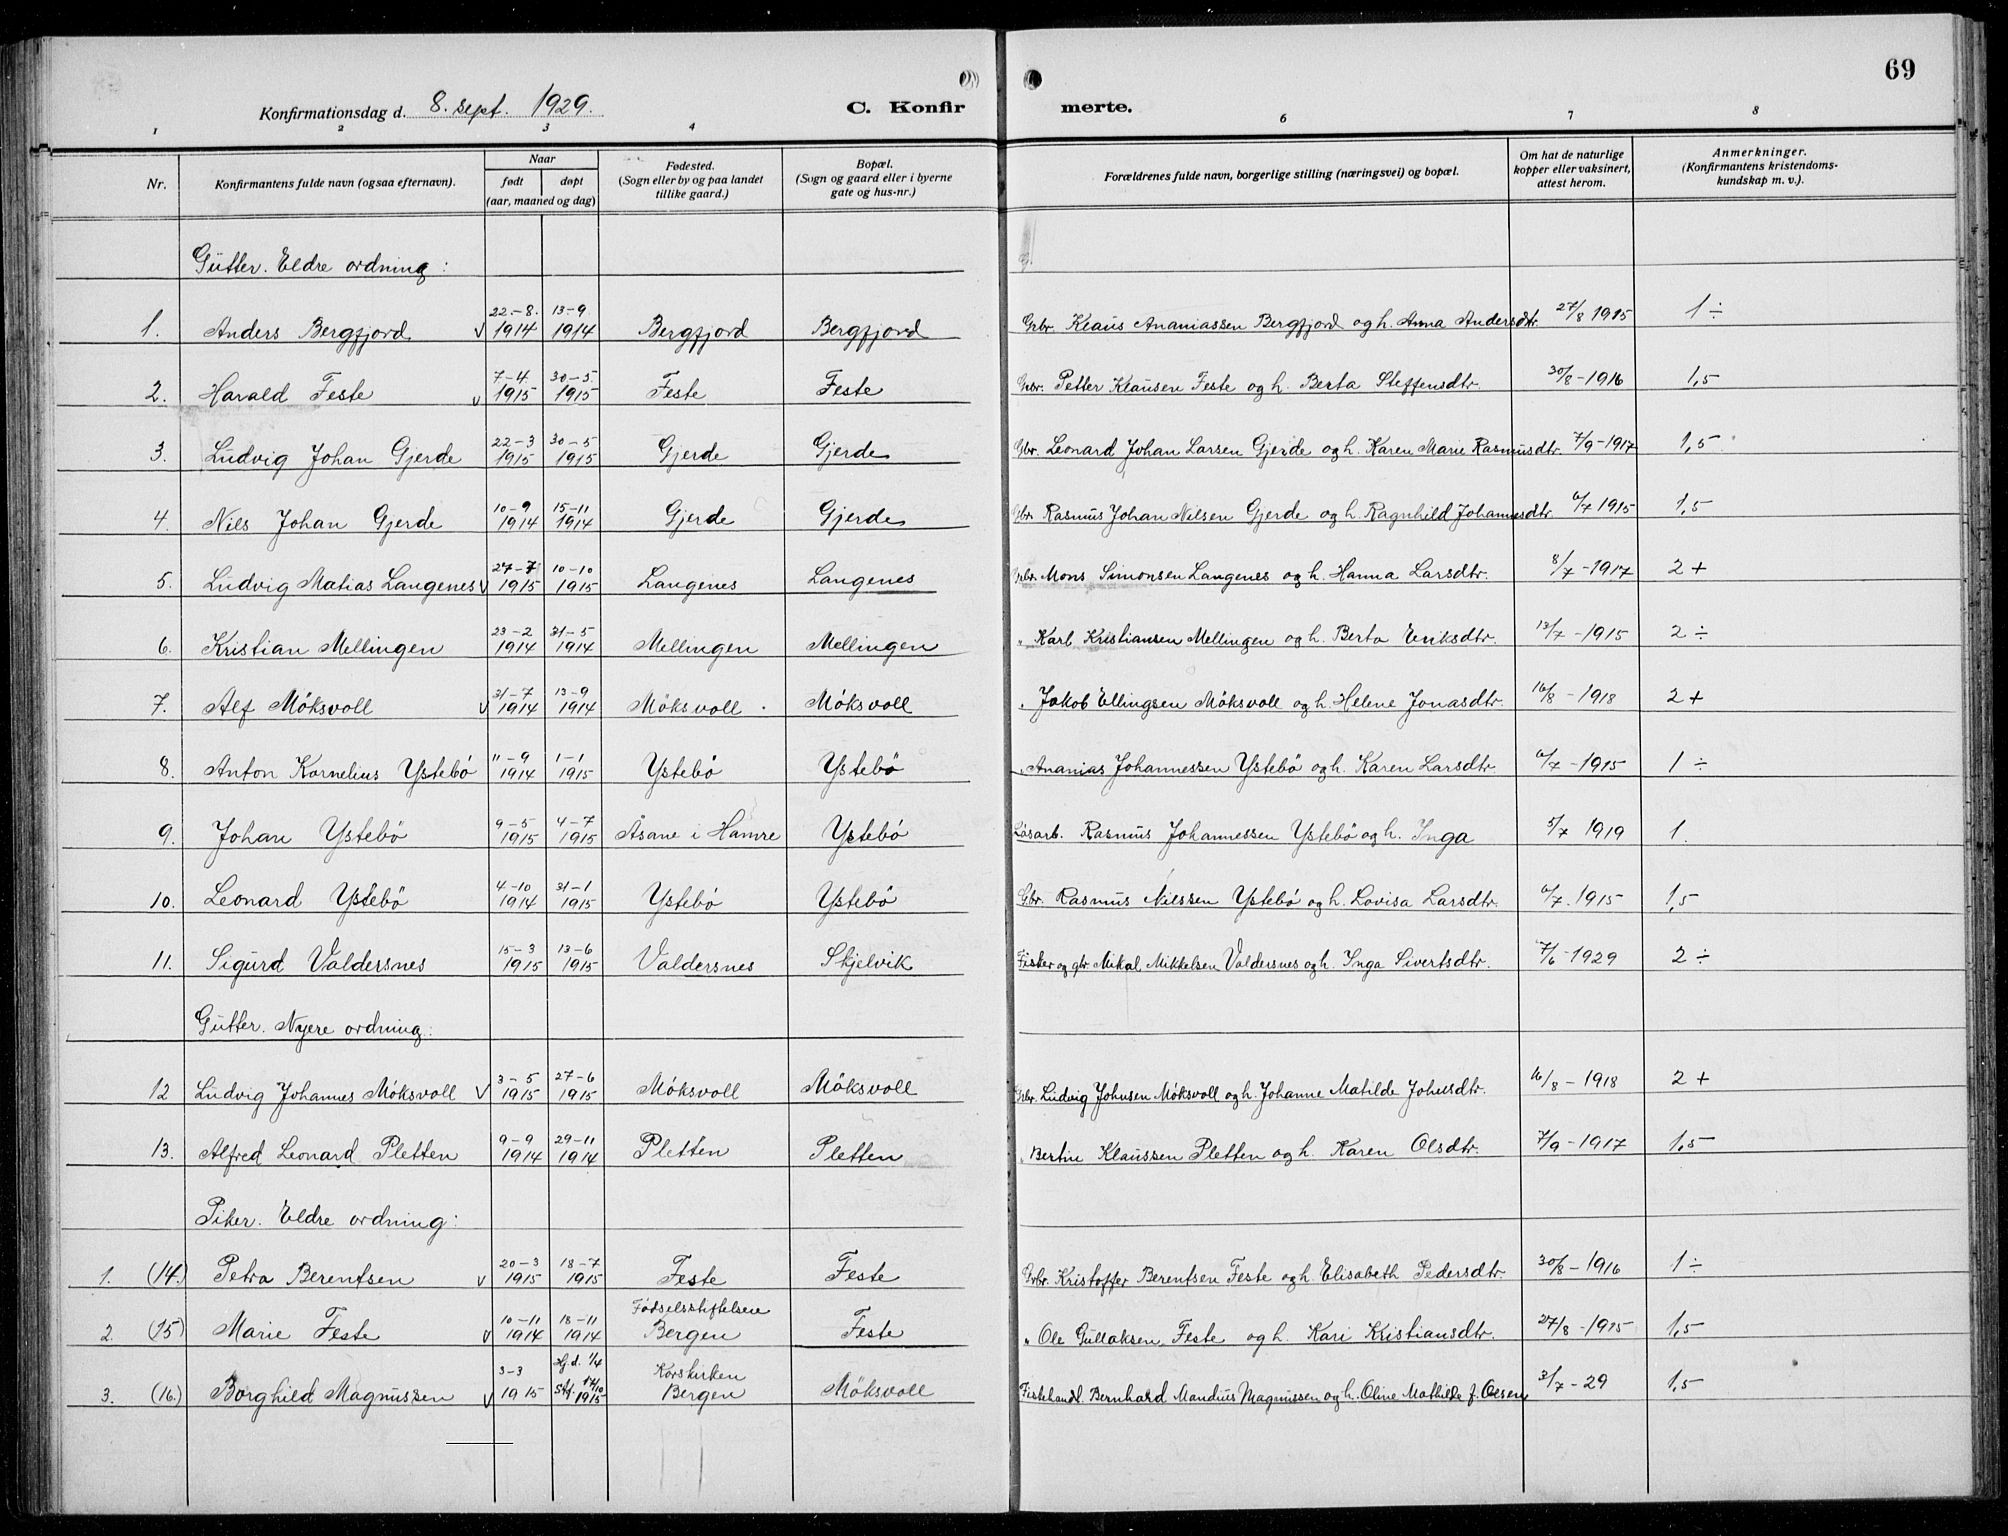 69
Konfirmationsdag d. 8. sept. 1929. C. Konfir merte.
1 2 3 4 6 7 8
Nr. Konfirmantens fulde navn (ogsaa efternavn). Naar født døpt (aar, maaned og dag) Fødested. (Sogn eller by og paa landet tillike gaard.) Bopæl. (Sogn og gaard eller i byerne gate og hus-nr.) Forældrenes fulde navn, borgerlige stilling (næringsvei) og bopæl. Om hat de naturlige kopper eller vaksinert, attest herom. Anmerkninger. (Konfirmantens kristendoms-kundskap m. v.).
Gutter. Eldre ordning:
1. Anders Bergfjord v 22-8. 1914 13-9 1914 Bergfjord Bergfjord Gbr. Klaus Ananiassen Bergfjord og h. Anna Andersdtr. 27/8 1915 1 ÷
2. Harald Feste v 7-4 1915 30-5 1915 Feste Feste Gbr. Petter Klausen Feste og h. Berta Steffensdtr. 30/8-1916 1,5
3. Ludvig Johan Gjerde 22-3 1915 30-5 1915 Gjerde Gjerde Gbr. Leonard Johan Larsen Gjerde og h. Karen Marie Rasmusdtr. 7/9-1917 1,5
4. Nils Johan Gjerde 10-9 1914 15-11 1914 Gjerde Gjerde Gbr. Rasmus Johan Nilsen Gjerde og h. Ragnhild Johannesdtr 6/7 1915 1,5
5. Ludvig Matias Langenes v 27-7 1915 10-10 1915 Langenes Langenes Gbr. Mons Simonsen Langenes og h. Hanna Larsdtr. 8/7-1917 2 +
6. Kristian Mellingen 23-2 1914 31-5 1914 Mellingen Mellingen " Karl Kristiansen Mellingen og h. Berta Eriksdtr. 13/7-1915 2 ÷
7. Alf Möksvoll v 31-7 1914 13-9 1914 Möksvoll Möksvoll " Jakob Ellingsen Möksvoll og h. Helene Jonasdtr. 16/8-1918 2 +
8. Anton Kornelius Ystebö 11-9 1914 1-1 1915 Ystebö Ystebö " Ananias Johannessen Ystebö og h. Karen Larsdtr. 6/7-1915 1 ÷
9. Johan Ystebö 9-5 1915 4-7 1915 Åsane i Hamre Ystebö Løsarb. Rasmus Johannessen Ystebö og h. Inga 5/7 1919 1.
10. Leonard Ystebö 4-10 1914 31-1 1915 Ystebö Ystebö Gbr. Rasmus Nilssen Ystebö og h. Lovisa Larsdtr. 6/7.1915 1,5
11. Sigurd Valdersnes 15-3 1915 13-6 1915 Valdersnes Skjelvik Fisker og gbr Mikal Mikkelsen Valdersnes og h. Inga Sivertsdtr. 7/6-1929 2 ÷
Gutter. Nyere ordning:
12 Ludvig Johannes Möksvoll v 3-5 1915 27-6 1915 Möksvoll Möksvoll Gbr. Ludvig Johnsen Möksvoll og h. Johanne Matilde Johnsdtr. 16/8-1918 2 +
13. Alfred Leonard Pletten 9-9 1914 29-11 1914 Pletten Pletten " Bertin Klaussen Pletten og h. Karen Olsdtr. 7/9-1917 1,5
Piker. Eldre ordning:
1. (14.) Petra Berentsen v 20-3 1915 18-7 1915 Feste Feste Gbr. Kristoffer Berentsen Feste og h. Elisabeth Pedersdtr. 30/8-1916 1 ÷
2. (15) Marie Feste v 10-11 1914 18-11 1914 Fødselsstiftelsen Bergen Feste " Ole Gullaksen Feste og h. Kari Kristiansdtr. 27/8-1915 1,5
3. (16.) Borghild Magnussen v 3-3 1915 Hj.d. 1/4 Stf. 17/10 1915 Korskirken Bergen Möksvoll Fiskehandl. Bernhard Mandius Magnussen og h. Oline Mathilde f. Olsen 3/7-29 1,5